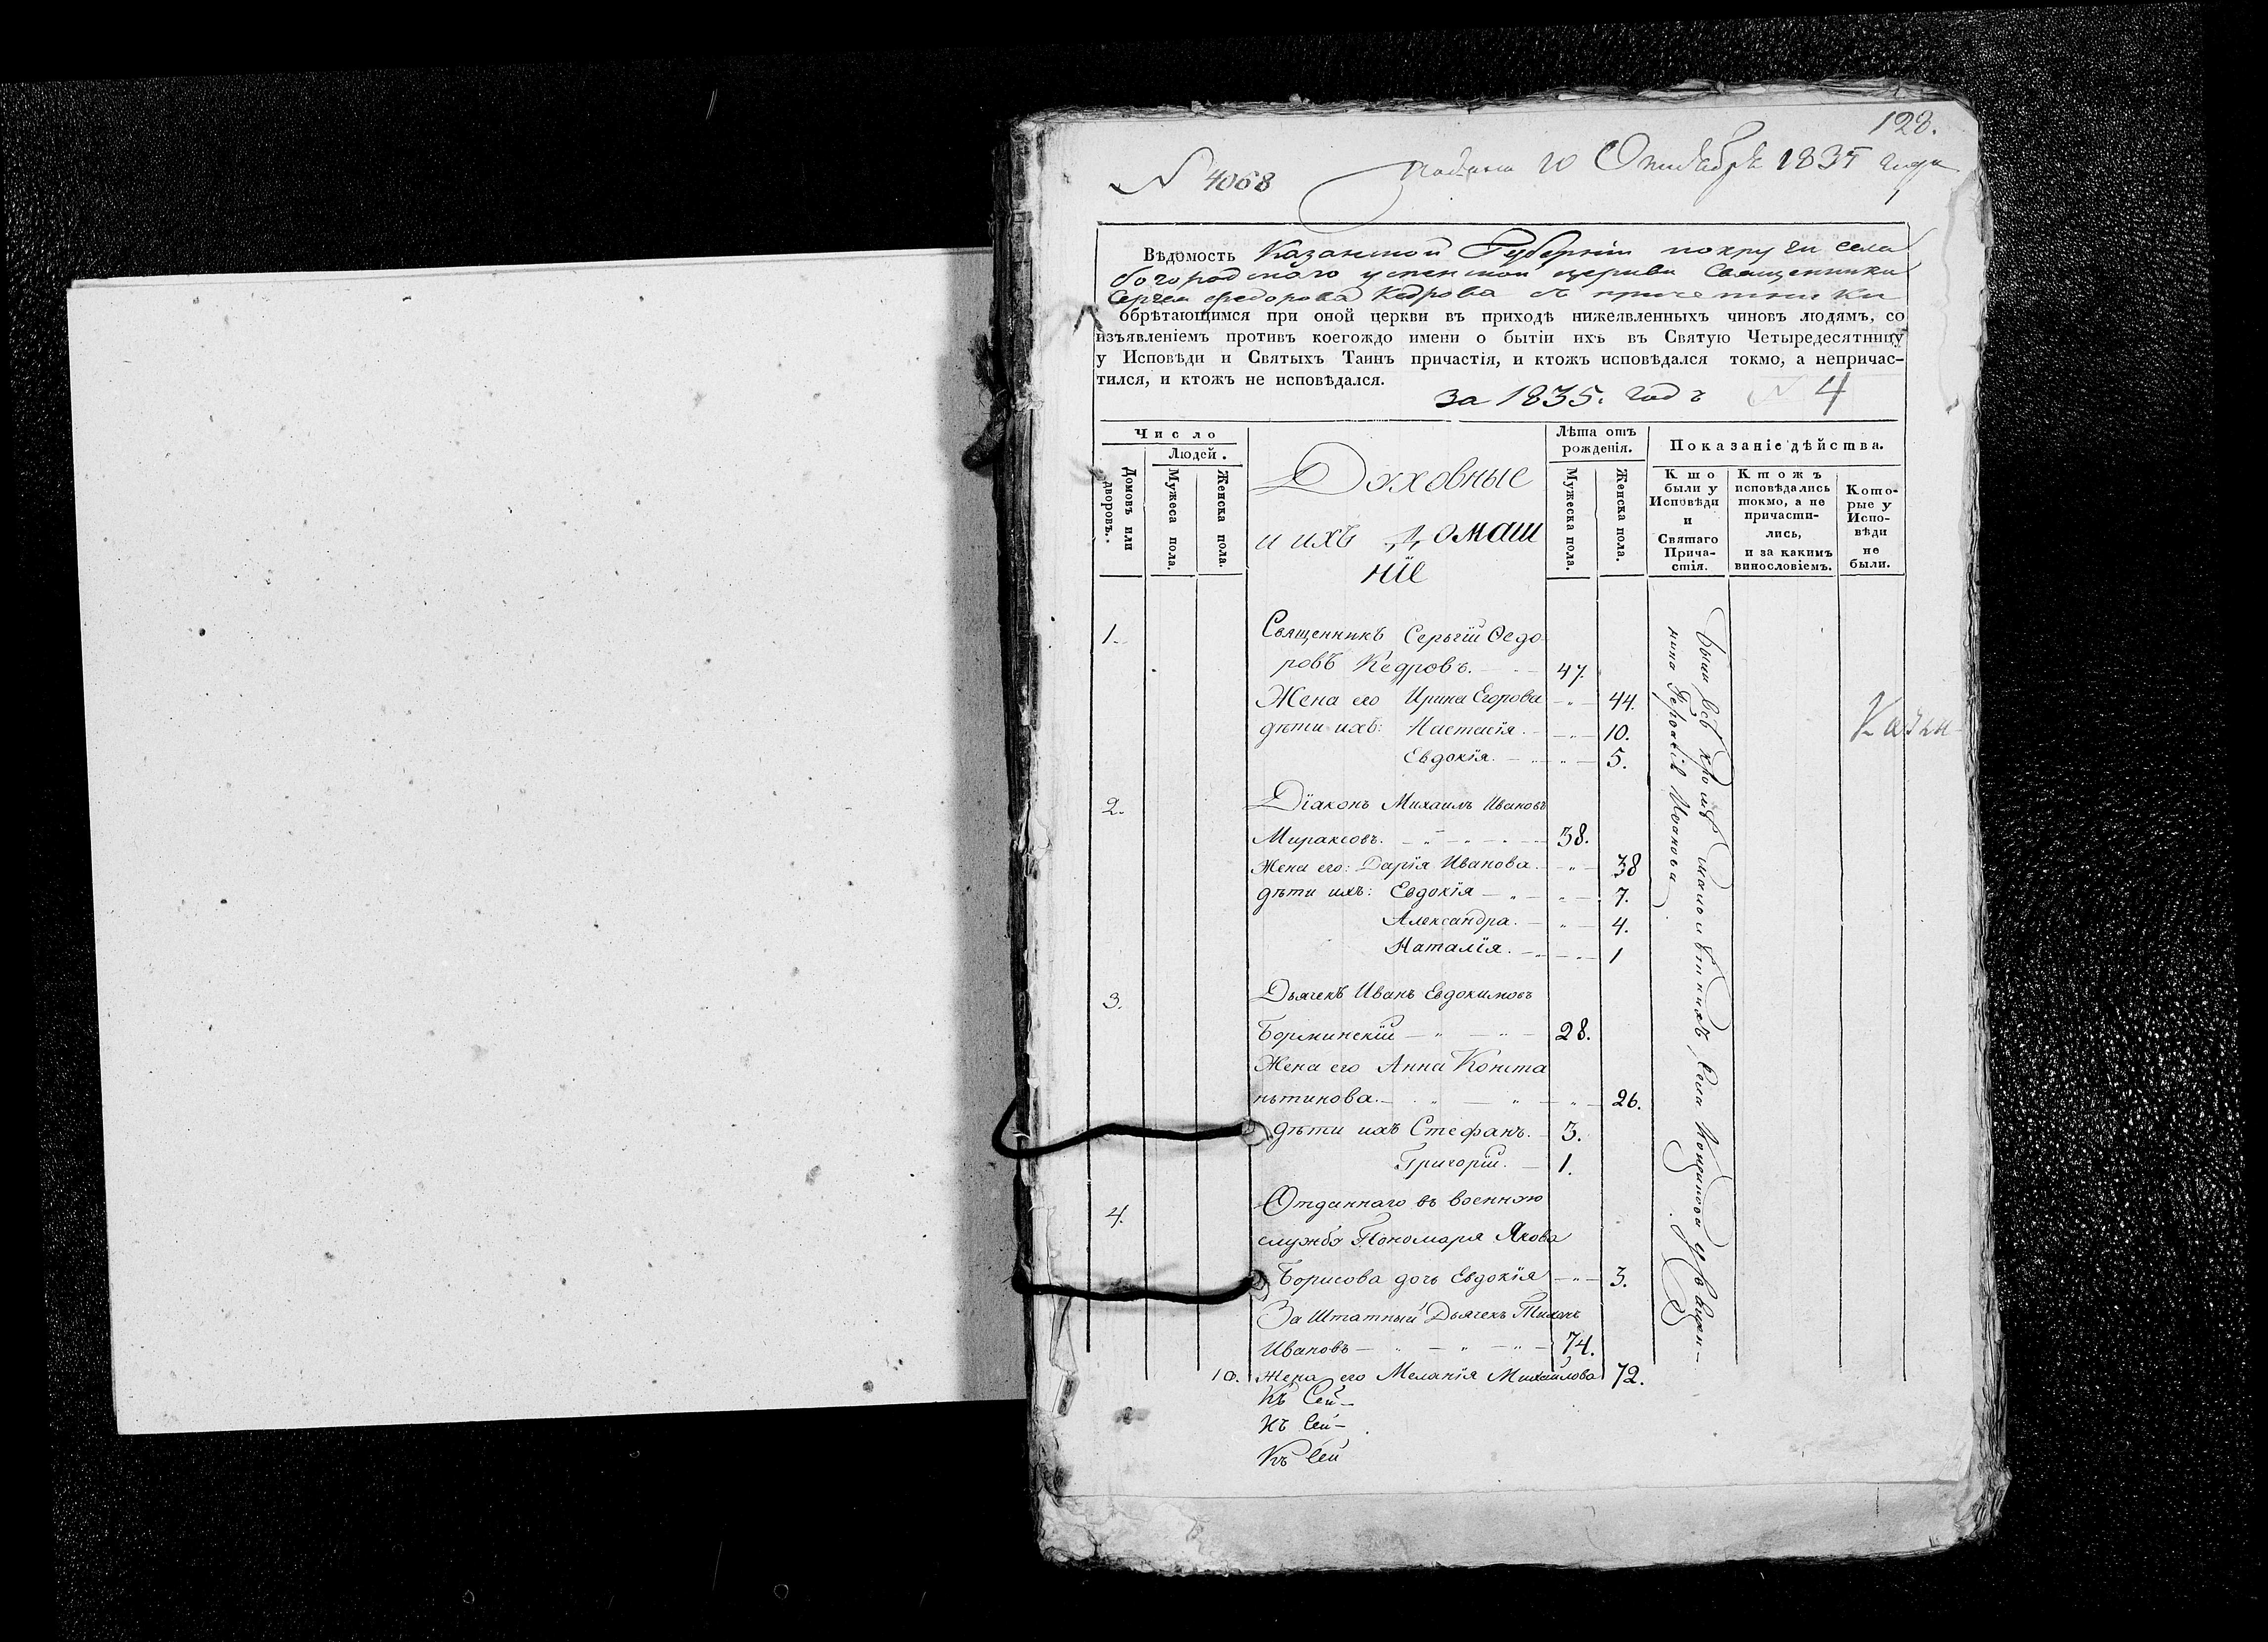 128.
№ 4068
Подана 10 Октября 1835 года
1
Вѣдомость Казанской Губерніи по округи села
богородскаго успенской церкви Священника
Сергея федорова Кедрова съ причетники
обрѣтающимся при оной церкви въ приходѣ нижеявленныхъ чиновъ людямъ, со
изъявленіемъ противъ коегождо имени о бытіи ихъ въ Святую Четыредесятницу
у Исповѣди и Святыхъ Таинъ причастія, и ктожъ исповѣдался токмо, а непричас-
тился, и ктожъ не исповѣдался.
за 1835. годъ № 4
Число
Людей.
Домовъ или дворовъ.
Мужеса пола.
Женска пола.
Духовные
и ихъ домаш
ніе
Лѣта отъ рожденія.
Мужеска пола.
Женска пола.
Показаніе дѣйства.
Кто были у Исповѣди и Святаго Прича-стія.
Ктожъ исповѣдались токмо, а не причасти-лись, и за какимъ винословіемъ.
Кото-рые у Испо-вѣди не были.
1. Священникъ Сергій Ѳедо
ровъ Кедровъ. 47.
Жена его Ирина Егорова 44.
дѣти ихъ: Настасія. 10.
Евдокія. 5.
2. Діаконъ Михаилъ Ивановъ
Мираксовъ. 38.
Жена его: Дарія Иванова. 38
дѣти ихъ: Евдокія 7.
Александра. 4.
Наталія. 1
3. Дьячекъ Иванъ Евдокимовъ
Борминскій 28.
Жена его Анна Конста
ньтинова. 26.
дѣти ихъ Стефанъ. 3.
Григорій. 1.
4. Отданнаго въ военную
службу Пономаря Якова
Борисова дочь Евдокія 3.
За Штатный Дьячекъ Тихонъ
Ивановъ 74.
10. Жена его Меланія Михайлова 72.
Къ Сей
Къ Сей
Къ Сей
были всѣ кромѣ малолѣтнихъ, Села
Иванова